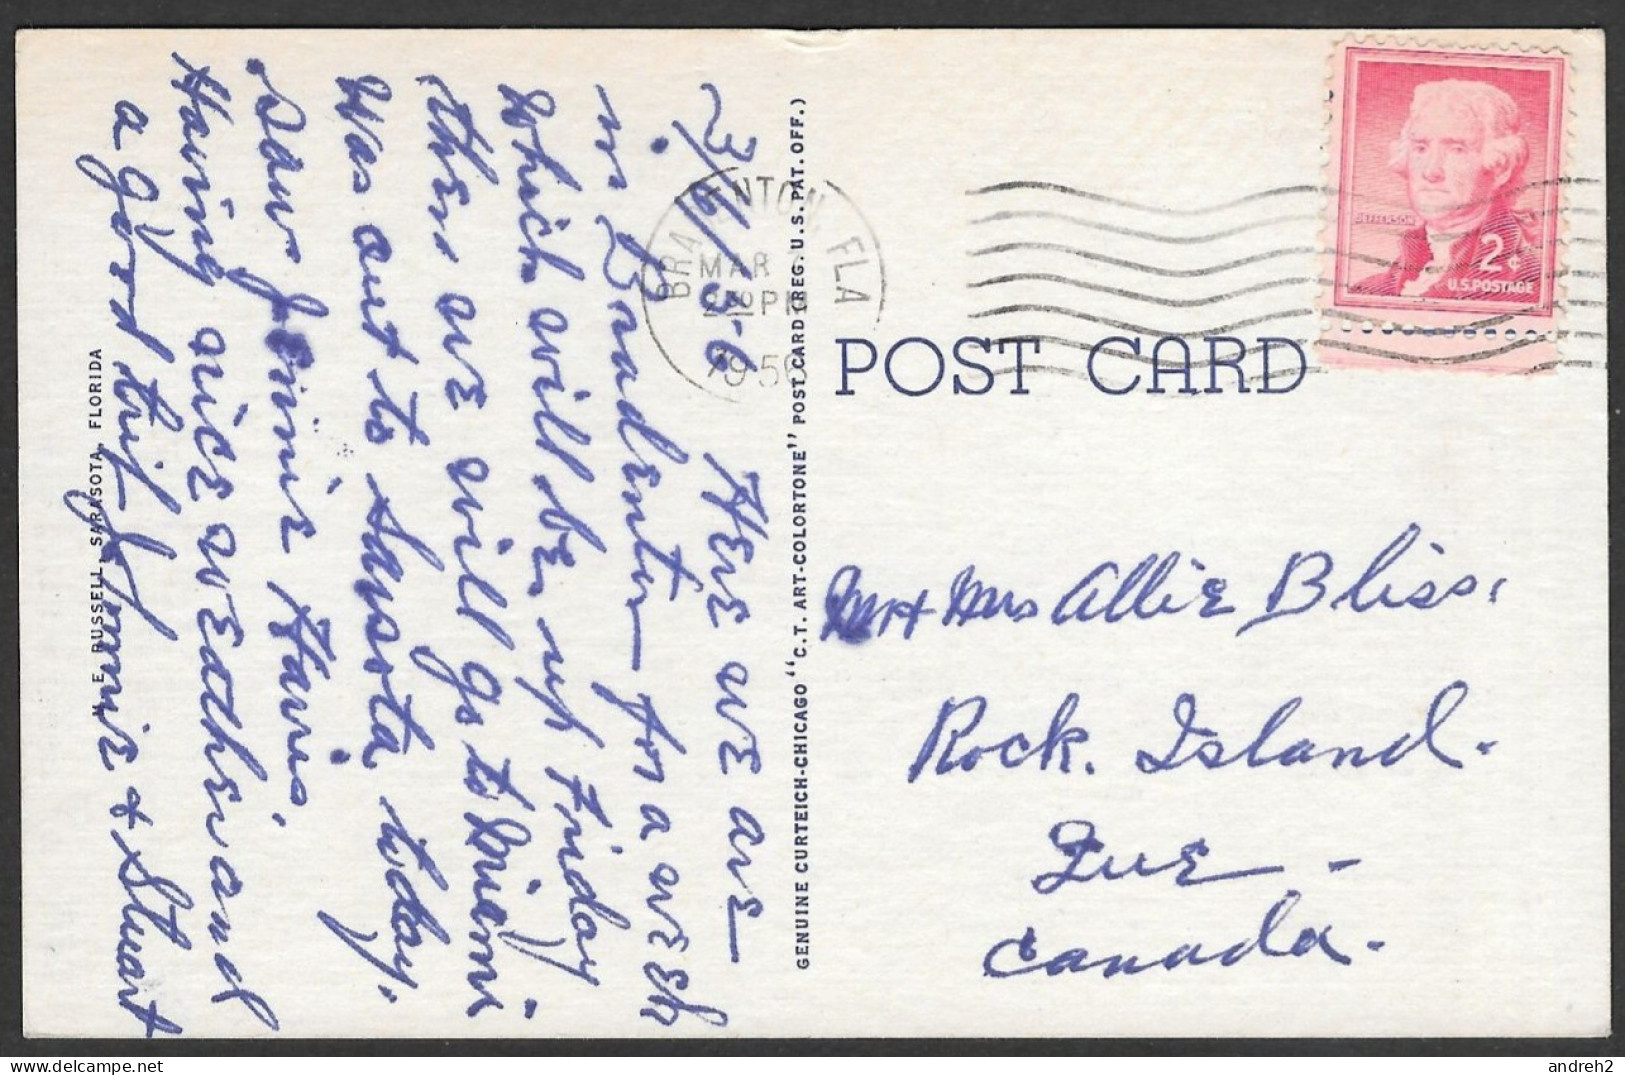 ~3/6/56
Here we are
in Bradenton for a week
which will be up Friday
then we will go to Miami
Was out to Sarasota today.
Saw Jennie Harris.
Having nice weather and
a good trip Jennie & Stuart
M. E. RUSSELL, SARASOTA, FLORIDA
GENUINE CURTEICH-CHICAGO "C.T. ART-COLORTONE" POST CARD (REG. U.S. PAT. OFF.)
BRADENTON, FLA
MAR
PM
1956
JEFFERSON
2¢
U.S. POSTAGE
POST CARD
Mr + Mrs Allie Bliss.
Rock. Island.
Que -
Canada.
andreh2